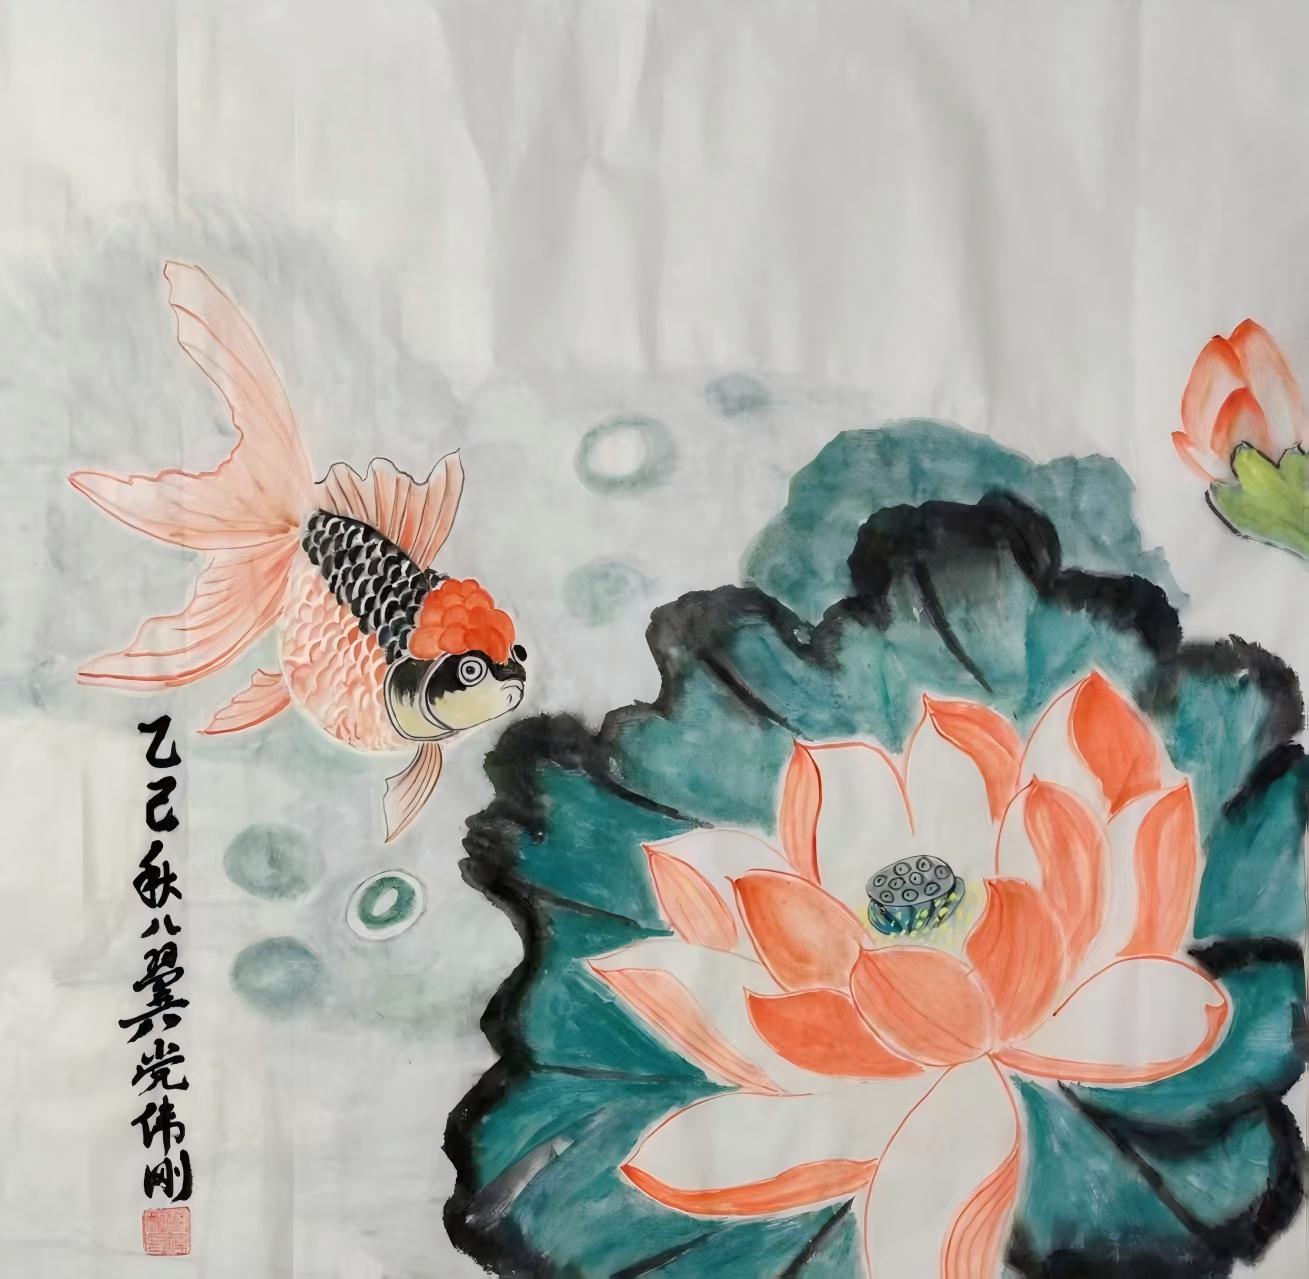 乙巳秋八翼党伟刚